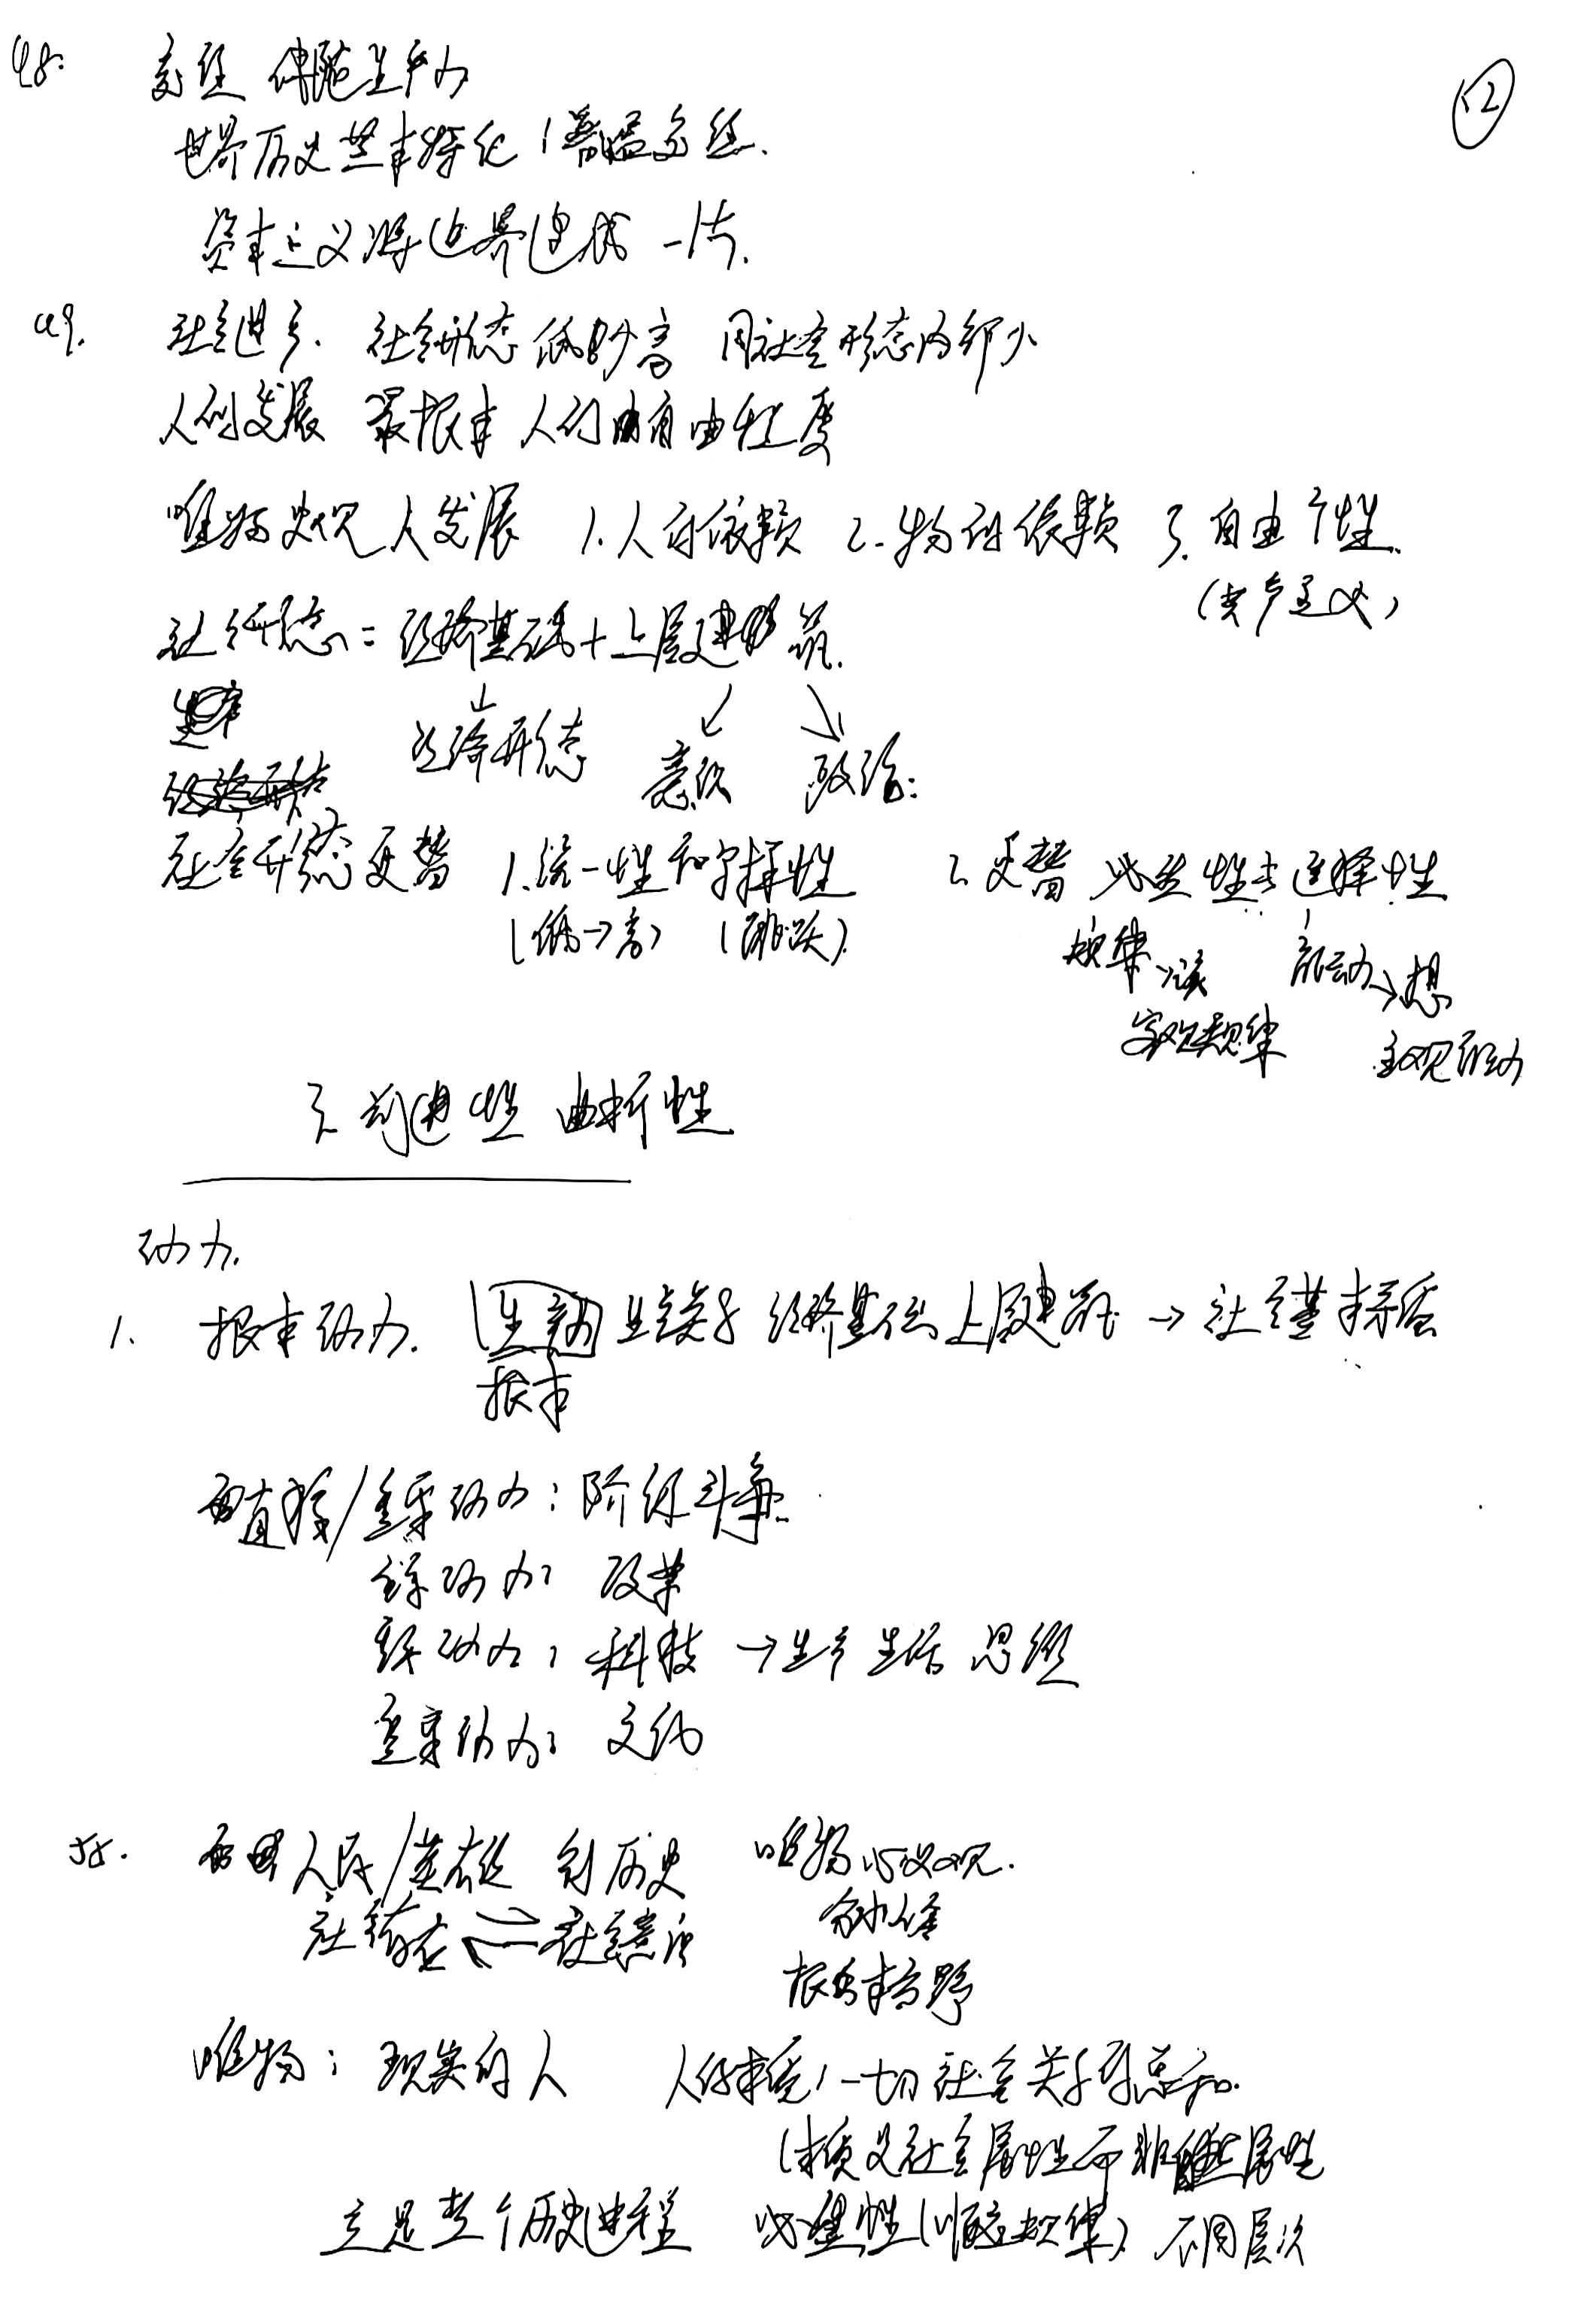 48. 交往 伴随生产力
⑫
世界历史基本特征 普遍交往.
资本主义将世界连成一片.
49. 社会进步. 社会形态低到高 同社会形态内部
人的发展 最根本 人的自由程度
唯物史观 人发展 1.人的依赖 2.物的依赖 3.自由个性.
(共产主义)
社会形态=经济基础+上层建筑.
↓ ↙ ↘
经济形态 意识 政治:
社会形态更替 1.统一性和多样性 2.更替 必然性与选择性
(低→高) (跳跃)
规律→该 能动→想
客观规律 主观能动
3.前进性 曲折性
动力.
1. 根本动力. 生产力 生产关系 经济基础 上层建筑 → 社会基本矛盾
根本
直接/重要动力: 阶级斗争.
重要动力: 改革
重要动力: 科技 → 生产 生活 思维
重要动力: 文化
58. 人民/英雄 创历史 唯物 史观.
社会存在 ⇌ 社会意识
根本
唯物: 现实的人 人的本质 一切社会关系的总和.
(本质是社会属性而非自然属性
立足整个历史进程 必然性(顺应规律) 不同层次